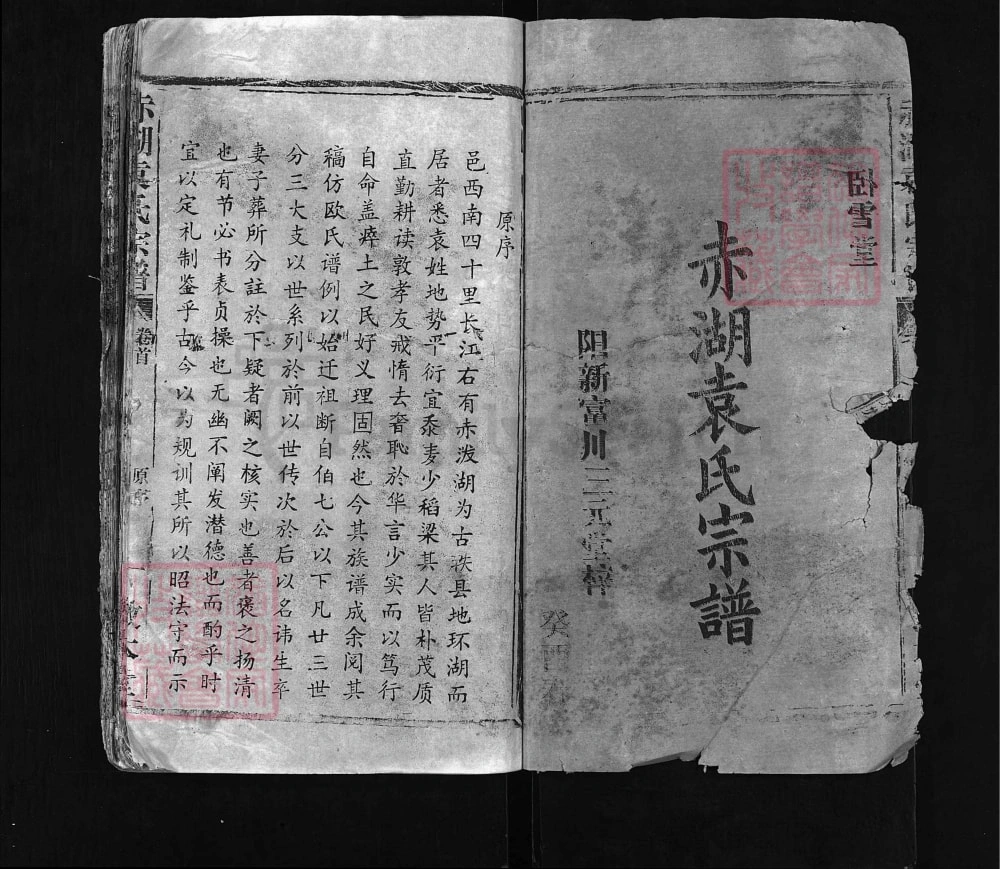 卧雪堂
赤湖袁氏宗譜
阳新富川三元堂梓
癸酉
原序
邑西南四十里长江右有赤泼湖为古袟县地环湖而
居者悉袁姓地势平衍宜黍麦少稻梁其人皆朴茂质
直勤耕读敦孝友戒惰去奢恥於华言少实而以笃行
自命盖瘠土之民好义理固然也今其族谱成余阅其
稿仿欧氏谱例以始迁祖断自伯七公以下凡廿三世
分三大支以世系列於前以世传次於后以名讳生卒
妻子葬所分註於下疑者阙之核实也善者褒之扬清
也有节必书表贞操也无幽不阐发潜德也而酌乎时
宜以定礼制鉴乎古今以为规训其所以昭法守而示
赤湖袁氏宗譜
卷首
原序